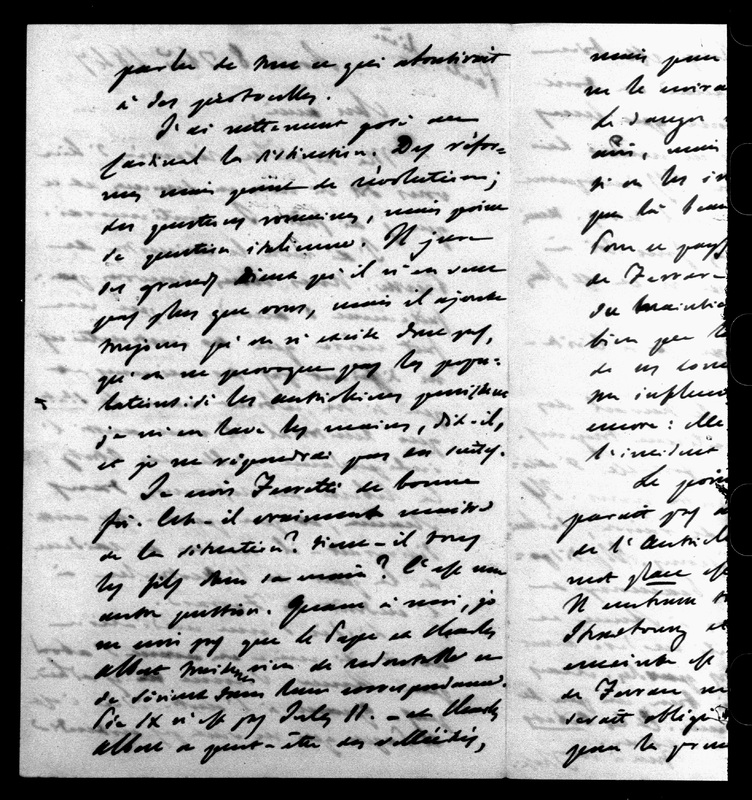 parler de tout ce qui aboutirait
à des protocoles.
J'ai nettement posé au
Cardinal la distinction. Des réfor-
mes mais point de révolution;
des questions romaines, mais point
de question italienne. Il jure
ses grands Dieux qu'il n'en veut
pas plus que vous, mais il ajoute
toujours qu'on n'excite donc pas,
qu'on ne provoque pas les popu-
lations: si les autrichiens
je m'en lave les mains, dit-il,
et je ne répondrai pas des suites.
Je crois Ferretti de bonne
foi. Est-il vraiment maître
de la situation? tient-il tous
les fils dans sa main? C'est une
autre question. Quant à moi, je
ne crois pas que le Pape et Charles
Albert rien de redoutable et
de sérieux dans leur correspondance.
Pie IX n'est pas Jules II. - et Charles
Albert a peut-être des velléités,
mais pour
ne le
le danger
mais
si on les
par là
Pour ce pays
de Ferrare
du maintien
bien que
de
encore: elle
l'incident
Le
paraît pas
de l'
mot place est
Il
Strasbourg et
enceinte est
de Ferrare
serait obligé
pour la